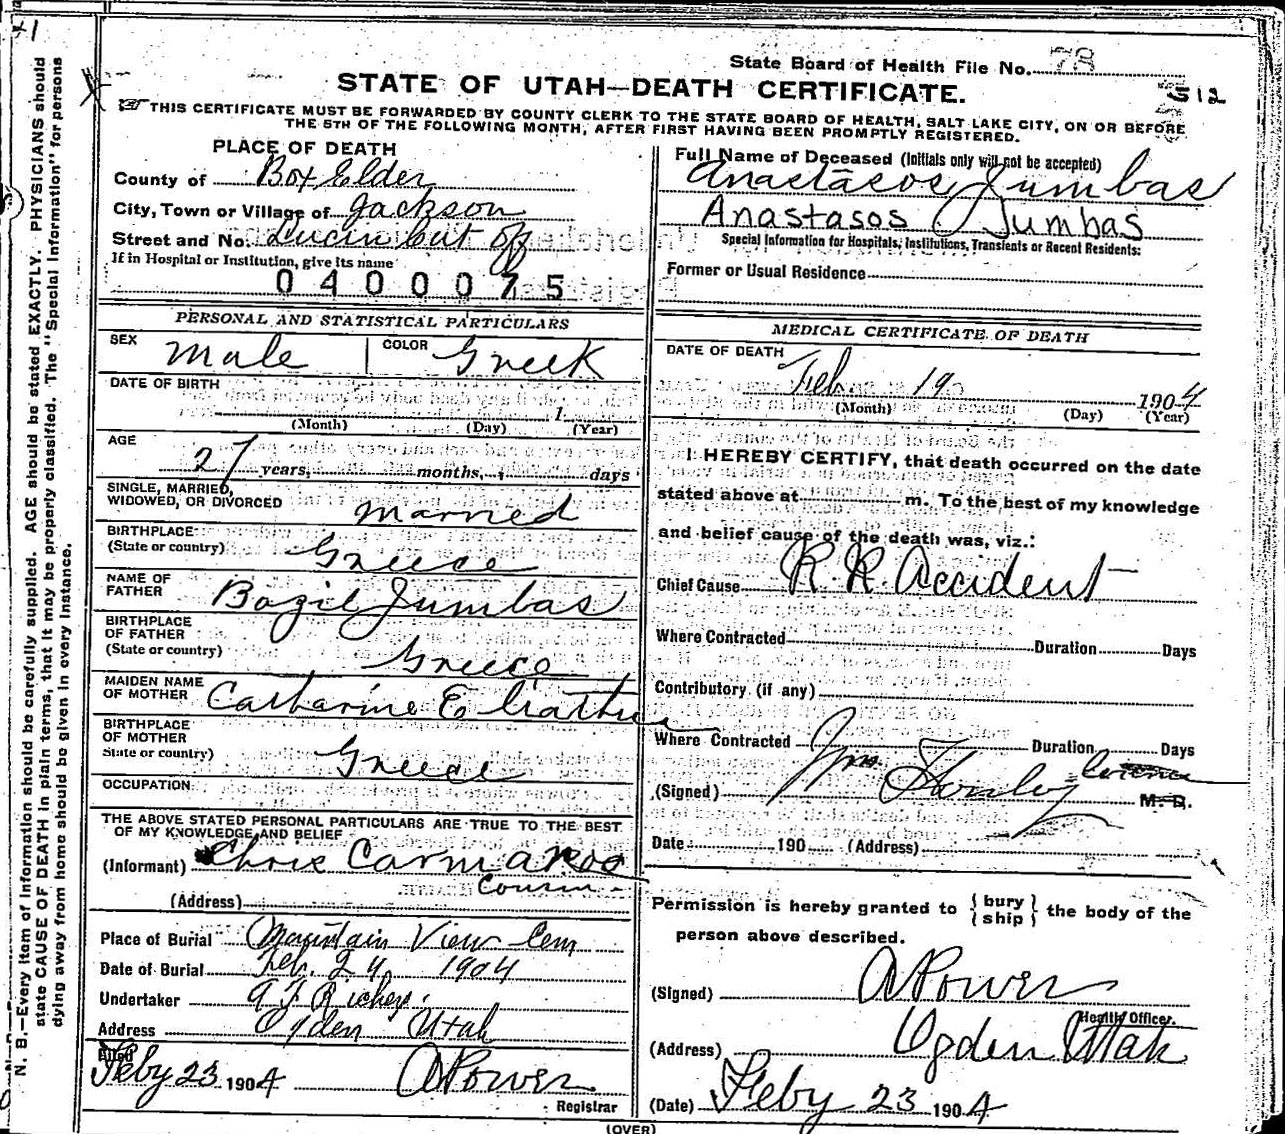 41
State Board of Health File No. 78
STATE OF UTAH—DEATH CERTIFICATE.
512
THIS CERTIFICATE MUST BE FORWARDED BY COUNTY CLERK TO THE STATE BOARD OF HEALTH, SALT LAKE CITY, ON OR BEFORE
THE 5TH OF THE FOLLOWING MONTH, AFTER FIRST HAVING BEEN PROMPTLY REGISTERED.
N. B.—Every item of information should be carefully supplied. AGE should be stated EXACTLY. PHYSICIANS should
state CAUSE OF DEATH in plain terms, that it may be properly classified. The "Special Information" for persons
dying away from home should be given in every instance.
PLACE OF DEATH
County of Box Elder
City, Town or Village of Jackson
Street and No. Lucin Cut Off
If in Hospital or Institution, give its name
0400075
PERSONAL AND STATISTICAL PARTICULARS
SEX Male COLOR Greek
DATE OF BIRTH
1
(Month) (Day) (Year)
AGE
27 years, months, days
SINGLE, MARRIED,
WIDOWED, OR DIVORCED Married
BIRTHPLACE
(State or country) Greece
NAME OF
FATHER Bazil Jumbas
BIRTHPLACE
OF FATHER
(State or country) Greece
MAIDEN NAME
OF MOTHER Catharine E
BIRTHPLACE
OF MOTHER
State or country) Greece
OCCUPATION
THE ABOVE STATED PERSONAL PARTICULARS ARE TRUE TO THE BEST
OF MY KNOWLEDGE AND BELIEF
(Informant) Chris Carmakos
Cousin
(Address)
Place of Burial Mountain View Cem
Date of Burial Feb. 24, 1904
Undertaker A F Richey
Address Ogden Utah
Filed
Feby 23 1904 A Power
Registrar
Full Name of Deceased (Initials only will not be accepted)
Anastasos Jumbas
Anastasos Jumbas
Special Information for Hospitals, Institutions, Transients or Recent Residents:
Former or Usual Residence
MEDICAL CERTIFICATE OF DEATH
DATE OF DEATH
Feb. 19 1904
(Month) (Day) (Year)
I HEREBY CERTIFY, that death occurred on the date
stated above at m. To the best of my knowledge
and belief cause of the death was, viz.:
Chief Cause R R Accident
Where Contracted Duration Days
Contributory (if any)
Where Contracted Duration Days
(Signed) Wm M. D.
Date 190 (Address)
Permission is hereby granted to { bury ship } the body of the
person above described.
(Signed) A Power
Health Officer.
(Address) Ogden Utah
(Date) Feby 23 1904
(OVER)